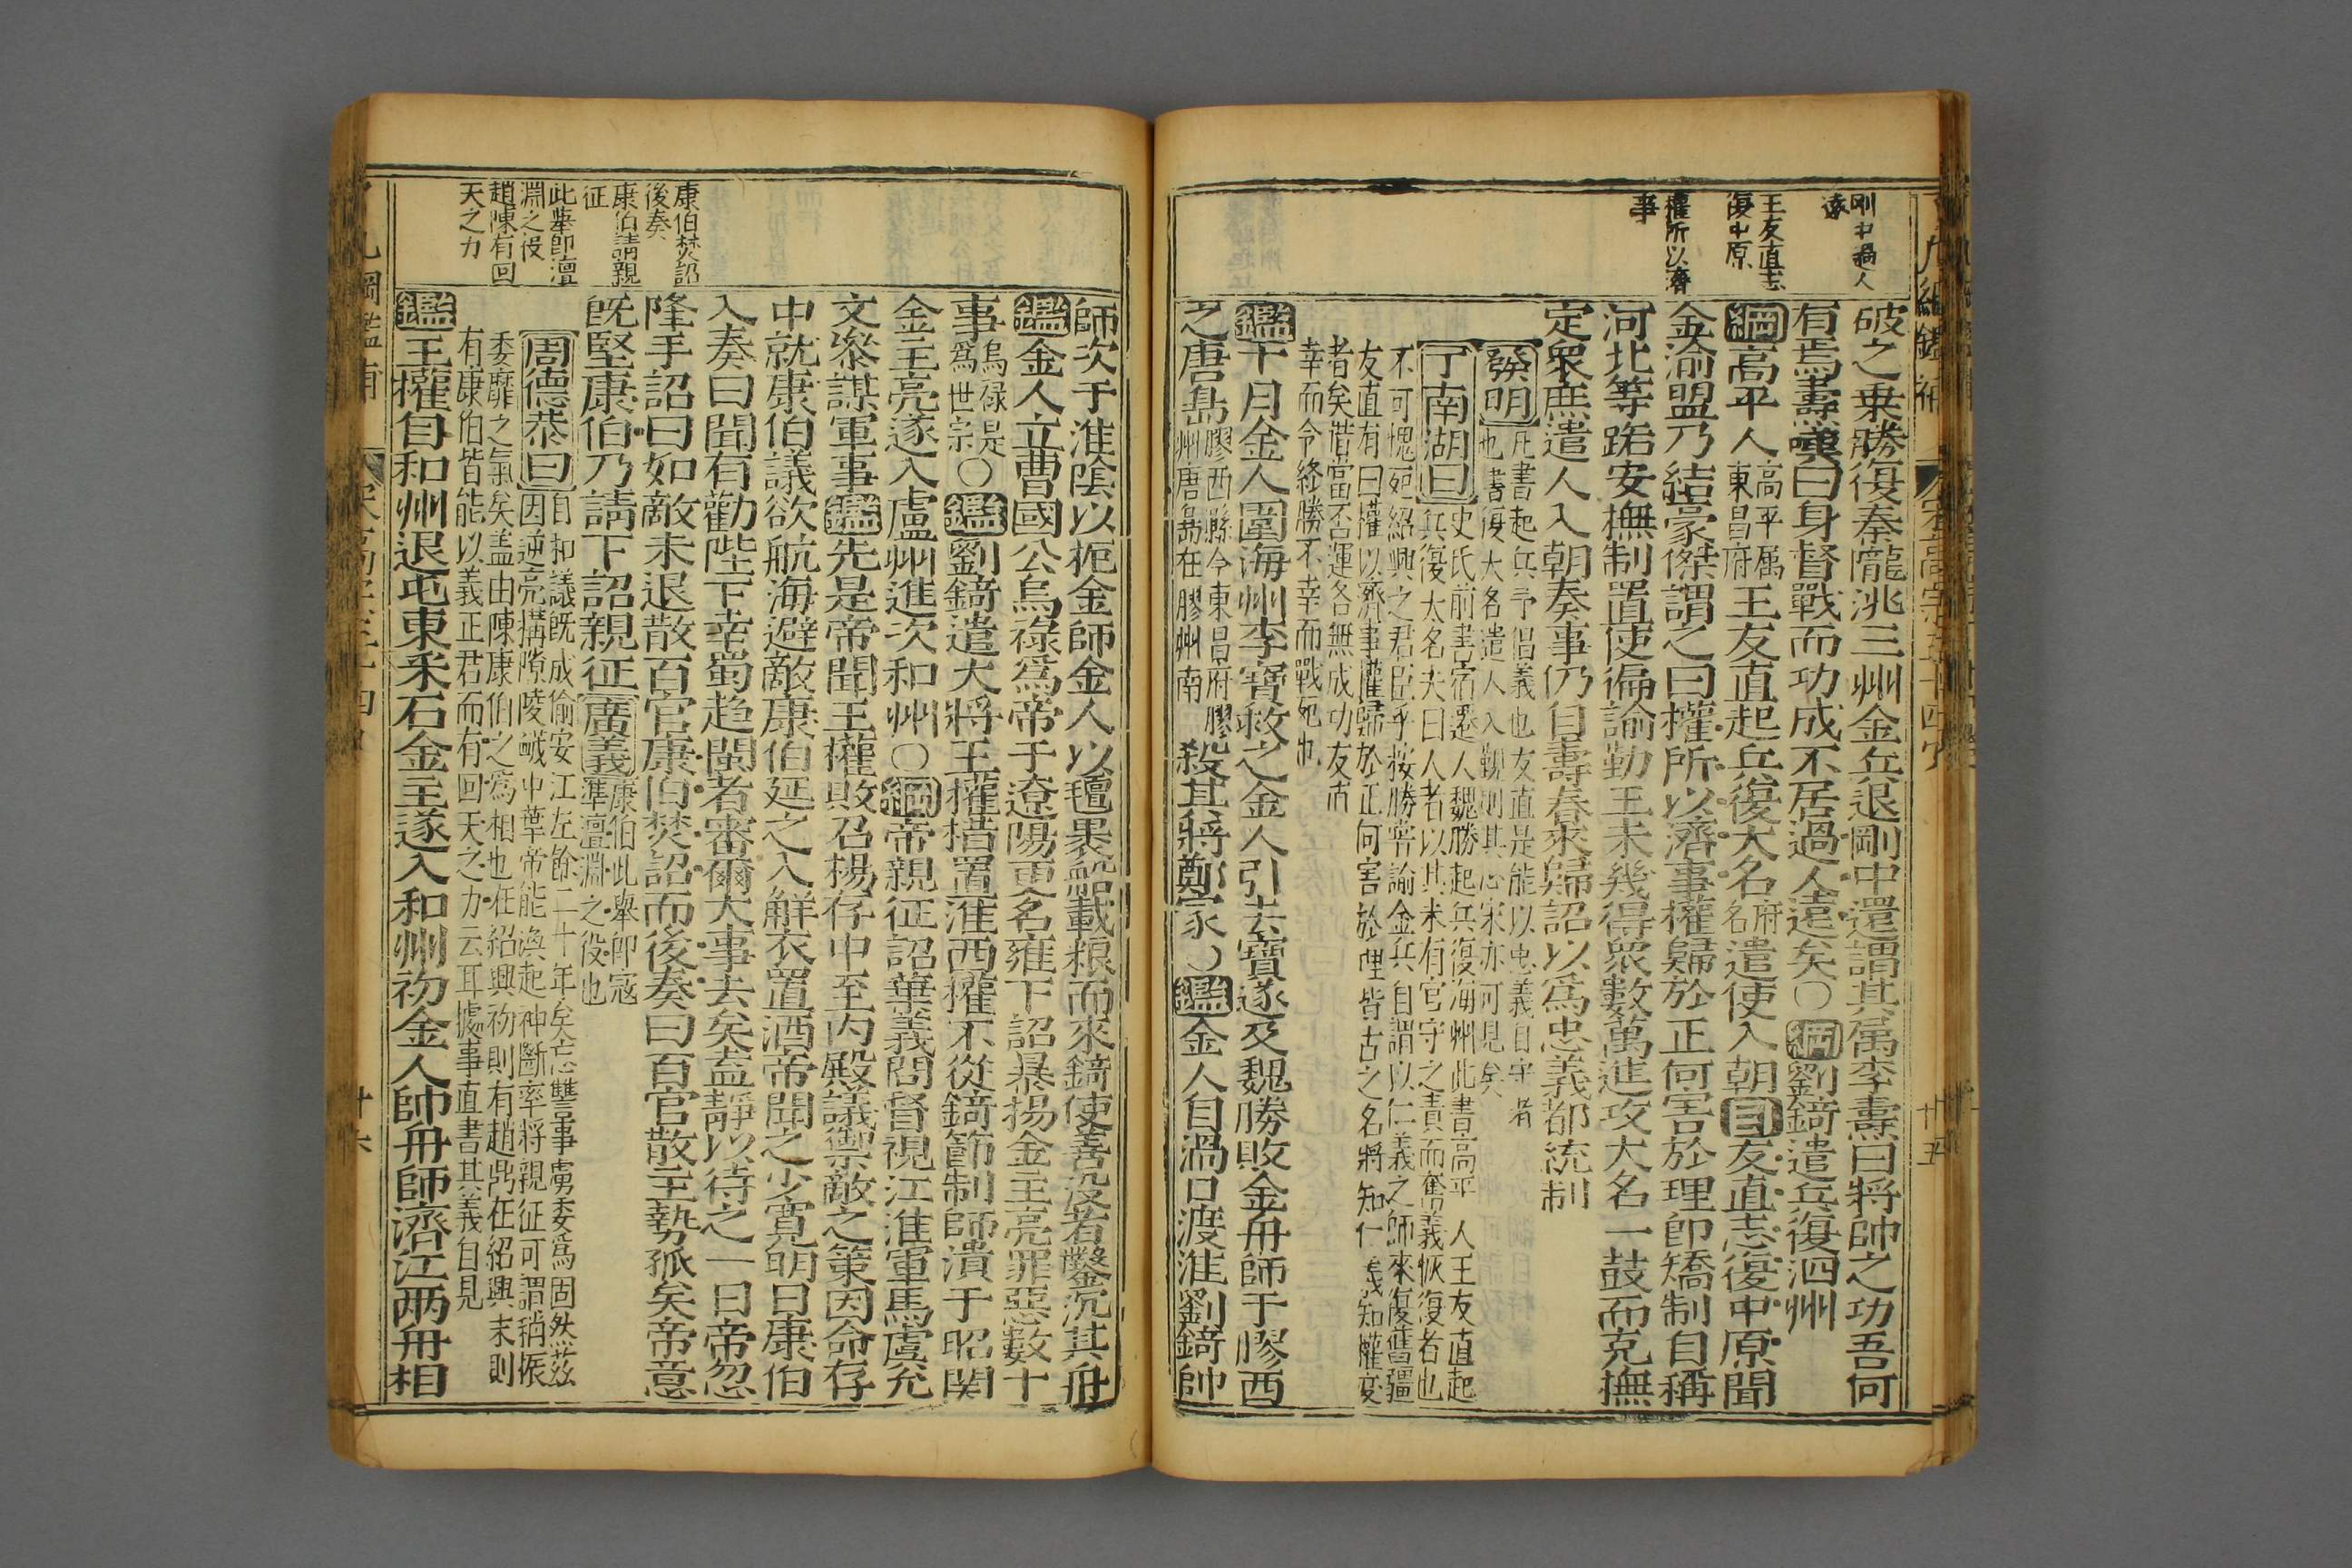 剛中過人
遠
王友直志
復中原
權所以濟
事
破之乗勝復秦隴洮三州金兵退剛中還謂其属李燾曰將帥之功吾何
有焉燾嘆曰身督戰而功成不居過人遠矣〇綱劉錡遣兵復泗州
綱高平人高平属東昌府王友直起兵復大名府名遣使入朝目友直志復中原聞
金渝盟乃結豪傑謂之曰權所以濟事權歸於正何害於理即矯制自稱
河北等路安撫制置使徧諭勤王未幾得眾數萬進攻大名一鼓而克撫
定眾庶遣人入朝奏事仍自壽春來歸詔以為忠義都統制
發明凡書起兵予倡義也友直是能以忠義自守者
也書復大名遣人入覲則其心宋亦可見矣
丁南湖曰史氏前書宿遷人魏勝起兵復海州此書高平人王友直起
兵復大名夫曰人者以其未有官守之責而奮義恢復者也
不可愧死紹興之君臣乎按勝寧諭金兵自謂以仁義之師來復舊疆
友直有曰權以濟事權歸於正何害於理皆古之名將知仁義知權变
者矣惜當否運各無成功友直
幸而令終勝不幸而戰死也
鑑十月金人圍海州李寶救之金人引去寶遂及魏勝敗金舟師于膠西
之唐島膠西縣今東昌府膠州唐島在膠州南殺其將鄭家〇鑑金人自渦口渡淮劉錡帥
師次于淮陰以扼金師金人以氊裹船載粮而來錡使善没者鑿沉其舟
鑑金人立曹國公烏祿爲帝于遼陽更名雍下詔暴揚金主亮罪惡數十
事烏祿是爲世宗〇鑑劉錡遣大將王權措置淮西權不從錡節制師潰于昭関
金主亮遂入廬州進次和州〇綱帝親征詔葉義問督視江淮軍馬虞允
文參謀軍事鑑先是帝聞王權敗召楊存中至内殿議禦敵之策因命存
中就康伯議欲航海避敵康伯延之入解衣置酒帝聞之少寬明日康伯
入奏曰聞有勸陛下幸蜀趋閩者審爾大事去矣盍靜以待之一日帝忽
隆手詔曰如敵未退散百官康伯焚詔而後奏曰百官散主勢孤矣帝意
既堅康伯乃請下詔親征廣義康伯此舉即寇準澶淵之役也
周德恭曰自和議既成偷安江左餘二十年矣忘讐事虜委爲固然茲
因逆亮搆隙陵蠛中華帝能渙起神斷率將親征可謂稍振
委靡之氣矣盖由陳康伯之爲相也在紹興初則有趙鼎在紹興末則
有康伯皆能以義正君而有回天之力云耳據事直書其義自見
鑑王權自和州退屯東采石金主遂入和州初金人帥舟師濟江兩舟相
康伯焚詔
後奏
康伯請親
征
此舉即澶
淵之役
趙陳有回
天之力